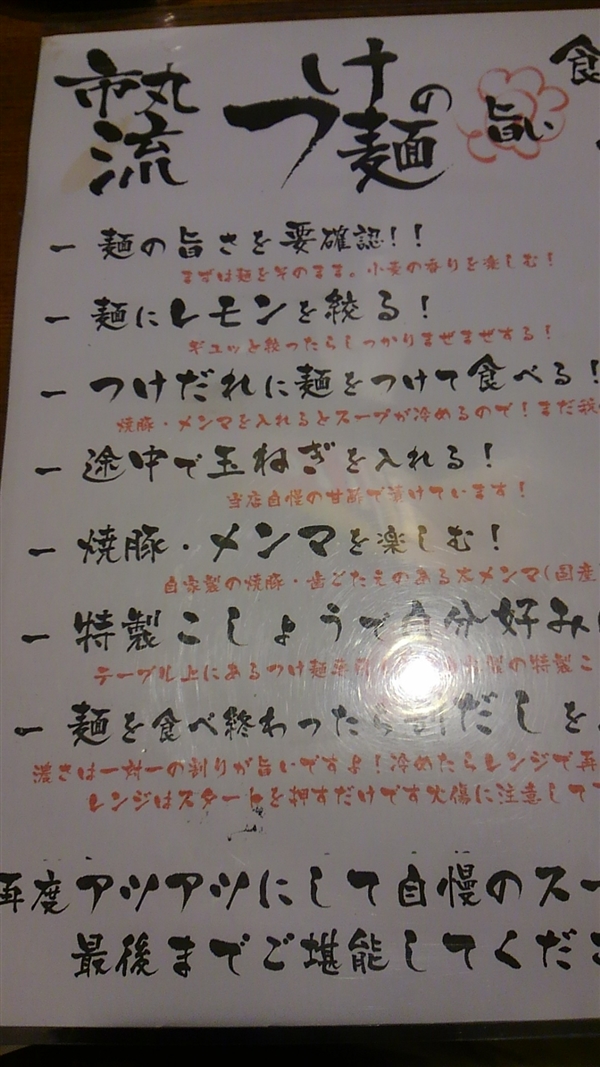 市丸流 つけ麺の旨い食
一 麺の旨さを要確認!!
まずは麺をそのまま。小麦の香りを楽しむ!
一 麺にレモンを絞る!
ギュッと絞ったらしっかりまぜまぜする!
一 つけだれに麺をつけて食べる!
焼豚・メンマを入れるとスープが冷めるので!まだ我
一 途中で玉ねぎを入れる!
当店自慢の甘酢で漬けています!
一 焼豚・メンマを楽しむ!
自家製の焼豚・歯ごたえのある太メンマ(国産
一 特製こしょうで自分好み
テーブル上にあるつけ麺専用 の特製こ
一 麺を食べ終わったら割だしを
濃さは一対一の割りが旨いですよ!冷めたらレンジで再
レンジはスタートを押すだけです火傷に注意して
再度アツアツにして自慢のスー
最後までご堪能してくだ